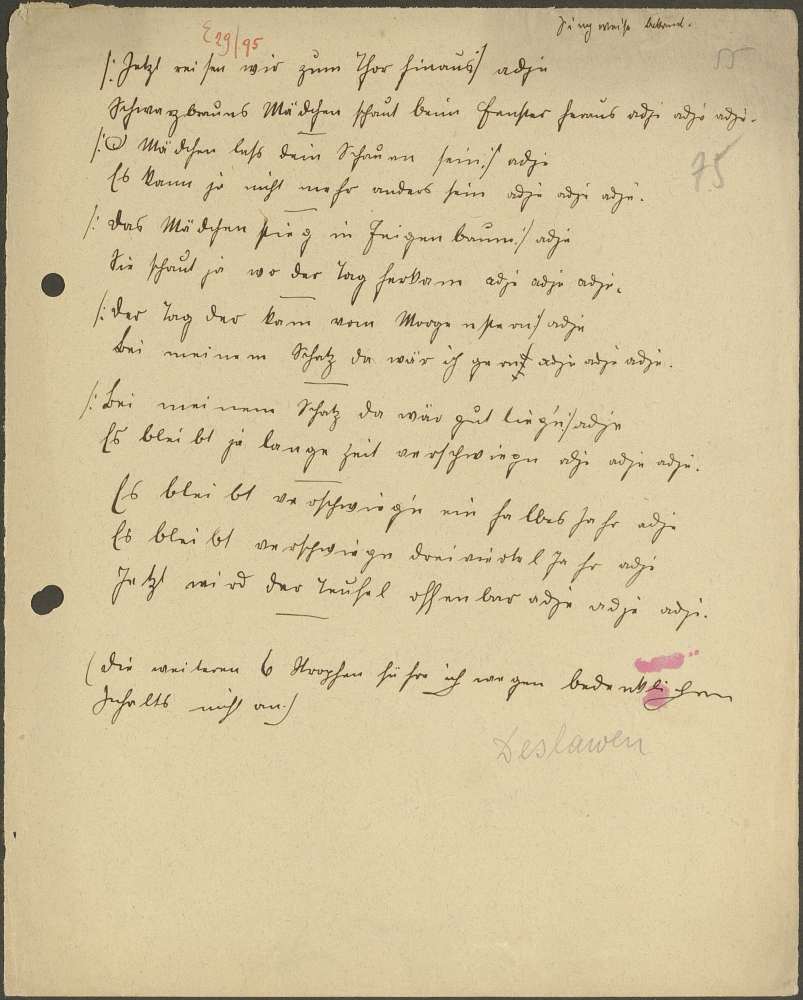 Singweise bekannt.
E29/95
/: Jetzt reisen wir zum Thor hinaus :/ adje
Schwarzbrauns Mädchen schaut beim Fenster heraus adje adje adje.
75
/: O Mädchen laß dein Schauen sein :/ adje
Es kann ja nicht mehr anders sein adje adje adje.
/: Das Mädchen stieg in Feigenbaum :/ adje
Sie schaut ja wo der Tag herkam adje adje adje.
/: Der Tag der kam vom Morgenstern :/ adje
Bei meinem Schatz da wär ich gern adje adje adje.
/: Bei meinem Schatz da wär gut lieg'n :/ adje
Es bleibt ja lange Zeit verschwiegn adje adje adje.
Es bleibt verschwieg'n ein halbes Jahr adje
Es bleibt verschwiegn dreiviertel Jahr adje
Jetzt wird der Teufel offenbar adje adje adje.
(Die weiteren 6 Strophen führe ich wegen bedenklichen
Inhalts nicht an.)
Deslawen